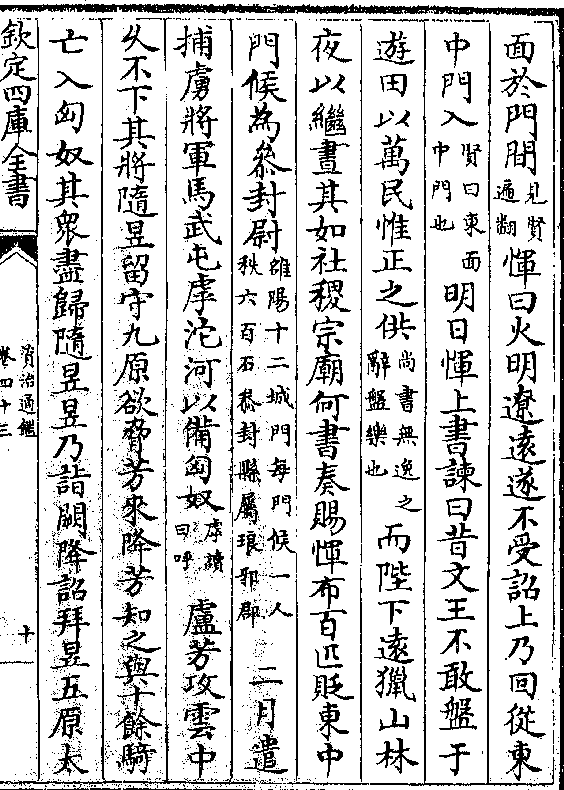 面於門間見賢遍翻惲曰火明遼遠遂不受詔上乃回從東
中門入賢曰東面中門也明日惲上書諫曰昔文王不敢盤于
遊田以萬民惟正之供尚書無逸之辭盤樂也而陛下遠獵山林
夜以繼晝其如社稷宗廟何書奏賜惲布百匹貶東中
門候為參封尉雒陽十二城門每門候一人秩六百石參封縣屬琅邪郡二月遣
捕虜將軍馬武屯虖沱河以備匈奴虖讀曰呼盧芳攻雲中
久不下其將隨昱留守九原欲脅芳來降芳知之與十餘騎
亡入匈奴其眾盡歸隨昱昱乃詣闕降詔拜昱五原太
欽定四庫全書
資治通鑑
卷四十三
十